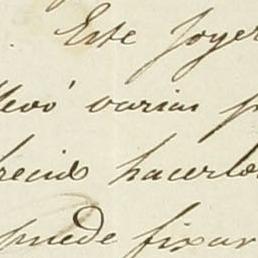 . Este joyer
llevó varias p
recido hacerlo
puede fixar